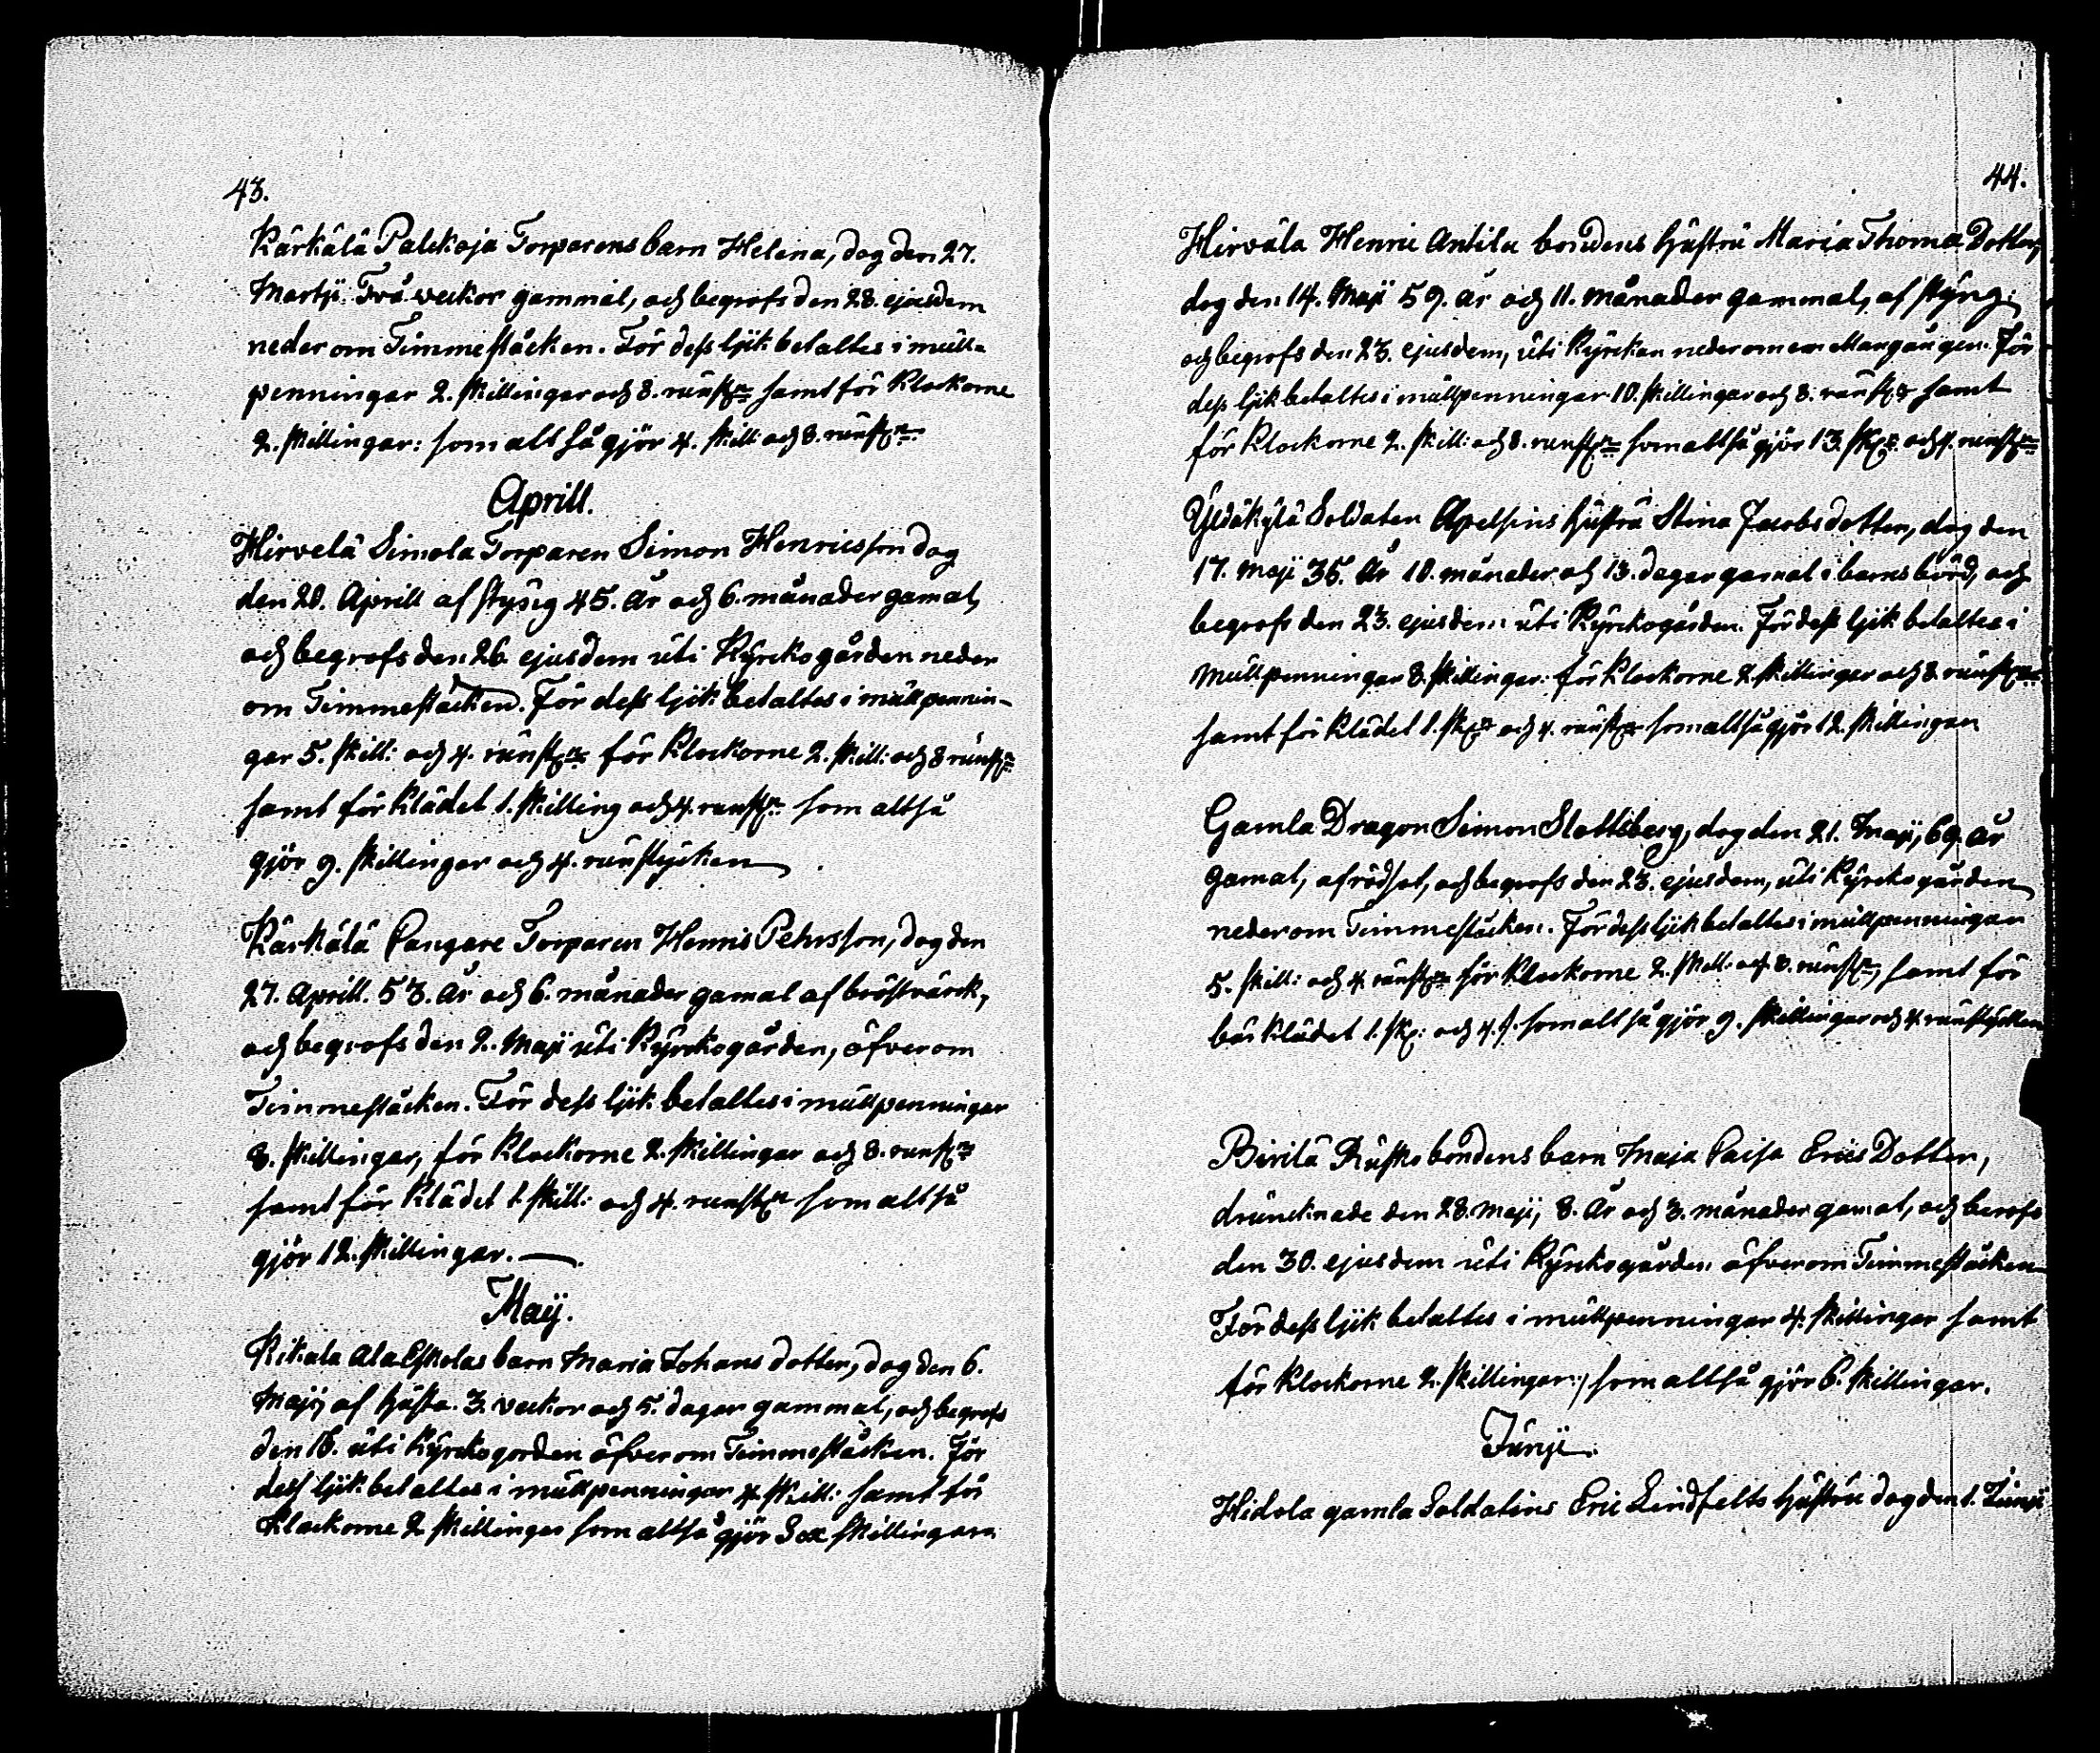 43.
Kärkälä Palckoja Torparens barn Helena, dog den 27.
Martji. Två veckor gammal, och begrofs den 28. ejusdem
neder om Timmeståcken. För dess ljik betaltes i mull-
penningar 2. skillingar och 8. runst:n samt för Klockorne
2. skillingar: som altså gjör 4. skill: och 8. runst:n
Aprill.
Hirvelä Simola Torparen Simon Henricsson dog
den 20. Aprill af styng 45. år och 6. månader gamal,
och begrofs den 26. ejusdem uti Kyrckogården neder
om Timmeståcken. För dess ljik betaltes i mullpennin-
gar 5. skill: och 4. runst:n för Klockorne 2. skill: och 8 runst:n
samt för Klädet 1. skilling och 4. runst:n som altså
gjör 9. skillingar och 4. runstycken
Kärkälä Pangare Torparen Henric Pehrsson, dog den
27. Aprill. 53. år och 6. månader gamal af bröstvärck,
och begrofs den 2. Maji uti Kyrckogården, öfver om
Timmeståcken. För dess ljik betaltes i mullpenningar
8. skillingar, för Klockorne 2. skillingar och 8. runst:n
samt för Klädet 1. skill: och 4. runst:n som altså
gjör 12. skillingar.
Maij.
Kikala Ala Eskolas barn Maria Johans dotter, dog den 6.
Maji, af husta. 3. veckor och 5. dagar gammal, och begrofs
den 16. uti Kyrckogorden öfver om Timmeståcken. För
dess ljik betaltes i mullpenningar 4. skill: samt för
Klockorne 2 skillingar som altså gjör Sex skillingar
44.
Hirvälä Henric Antila bondens hustru Maria Thomæ Dotter,
dog den 14. Maji 59. år och 11. månader gammal, af styng:
och begrofs den 23. ejusdem, uti Kyrckan nederom Mangången. För
dess ljik betaltes i mullpenningar 10. skillingar och 8. runst:r samt
för Klockorne 2. skill: och 8. runst:n som altså gjör 13. sk:r och 4. runst:n
Yldäkylä Soldaten Apelsins hustru Stina Jacobs dotter, dog den
17. Maji 35. År 10. månader och 13. dagar gamal i barnsbörd, och
begrofs den 23. ejusdem uti Kyrckogården. För dess ljik betaltes i
mullpenningar 8. skillingar: för Klockorne 2. skillingar och 8. runst:n
samt för Klädet 1. sk:r och 4. runst:n som altså gjör 12. skillingar
Gamla Dragon Simon Slottsberg, dog den 21. Maji, 69. år
gamal, af rödsot, och begrofs den 23. ejusdem, uti Kyrckogården
nederom Timmeståcken. För dess ljik betaltes i mullpenningar
5. skill: och 4 runst:n för Klockorne 2. skill: och 8. runst:n, samt för
bår klädet 1. sk: och 4. r. som altså gjör 9. skillingar och 4 runstycken
Birilä Rusko bondens barn Maja Caisa Erics Dotter,
druncknade den 28. maji, 8. År och 3. månader gamal, och berofs
den 30. ejusdem uti Kyrckogården öfver om Timmeståcken
För dess ljik betaltes i mullpenningar 4. skillingar samt
för Klockorne 2. skillingar:, som altså gjör 6. skillingar.
Junji.
Hidola gamla Soldatens Eric Lindfelts hustru dog den 1. Junji